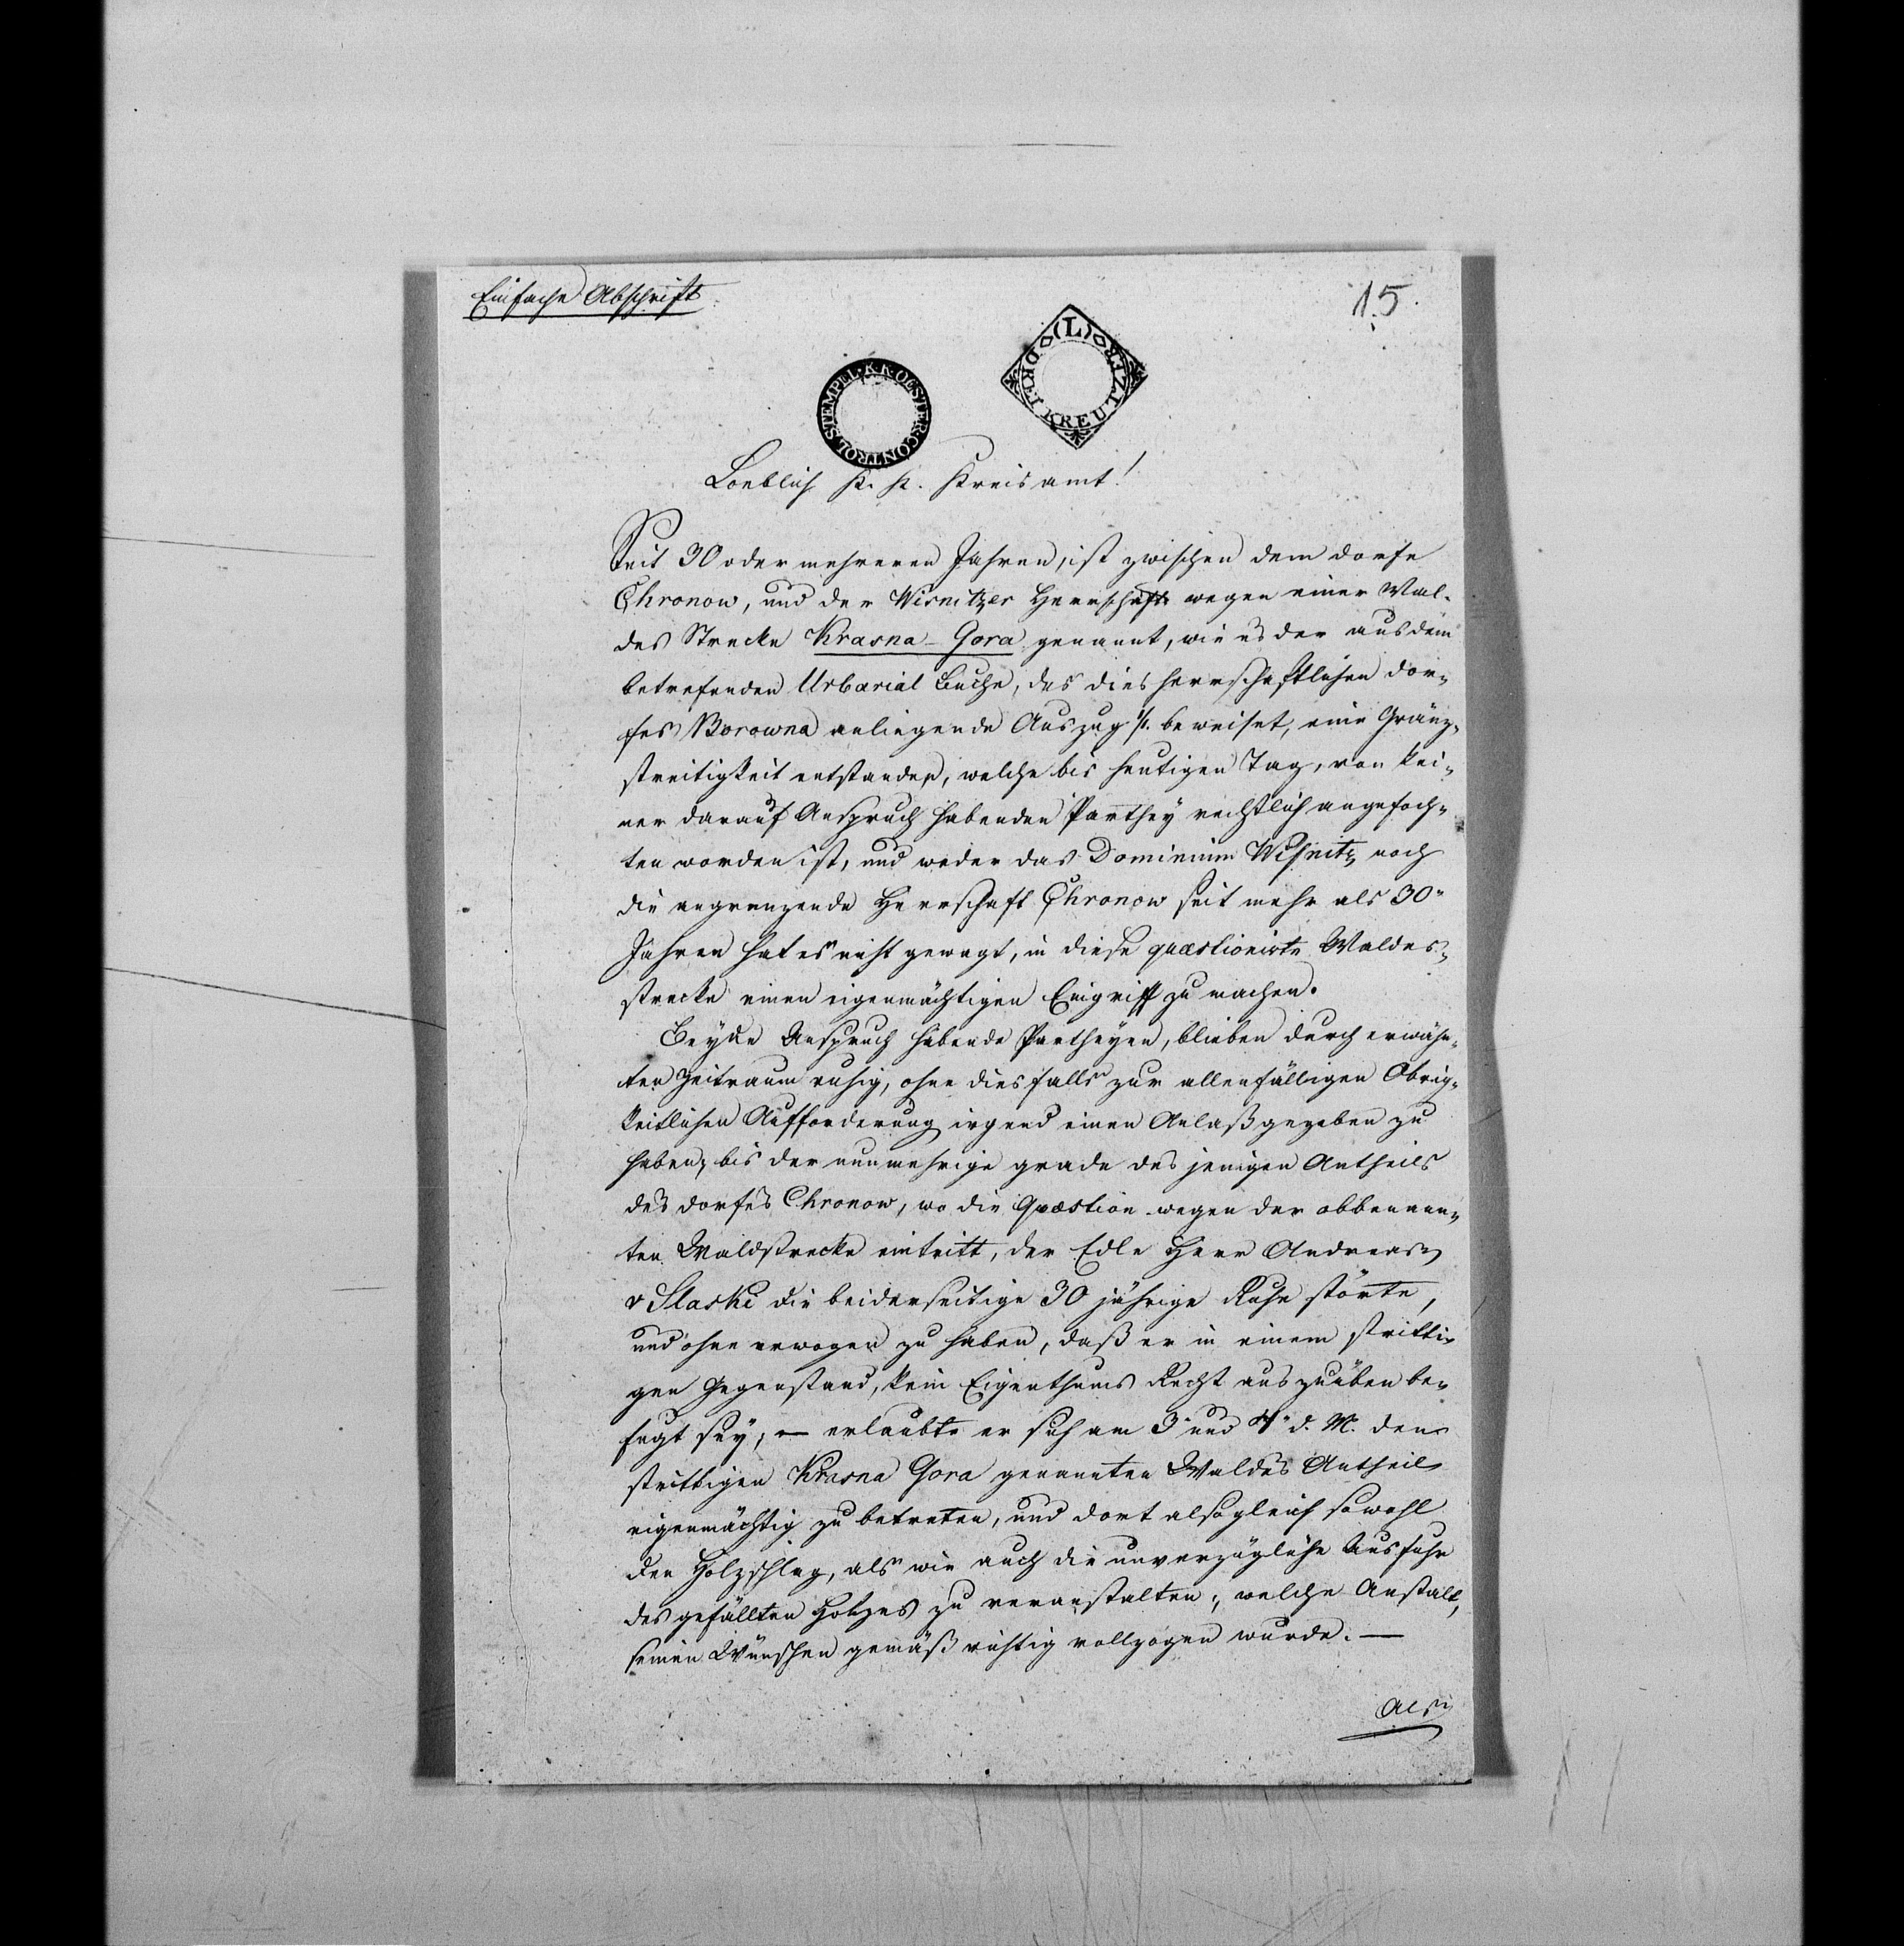 Einfache Abschrift
15.
K. K. OESTER. CONTROL STEMPEL
(L) DREI KREUTZER
Loeblich K. K. Kreisamt!
Seit 30 oder mehreren Jahren, ist zwischen dem dorfe
Chronow, und der Wisnitzer Herrschaft wegen einer Wal-
des Strecke Krasna-Gora genannt, wie es der aus dem
betrefenden Urbarial Buche, des diesherrschaftlichen dor-
fes Borowna anliegende Auszug 1/. beweiset, eine Gränz-
streitigkeit entstanden, welche bis heutigen Tag, von kei-
ner darauf Anspruch habenden Parthey rechtlich angefoch-
ten worden ist, und weder das Dominium Wisnitz noch
die angrenzende Herrschaft Chronow seit mehr als 30"
Jahren hat es nicht gewagt, in diese quæstionirte Waldes-
strecke einen eigenmächtigen Eingriff zu machen.
Beyde Anspruch habende Partheyen, blieben durch erwähn-
ten Zeitraum ruhig, ohne diesfalls zur allenfälligen Obrig-
keitlichen Aufforderung irgend einen Anlaß gegeben zu
haben, bis der nunmehrige grade des jenigen Antheils
des dorfes Chronow, wo die Quæstion wegen der obbenann-
ten Waldstrecke eintritt, der Edle Herr Andreas
v Slaski die beiderseitige 30 jährige Ruhe störte,
und ohne erwogen zu haben, daß er in einem stritti-
gen Gegenstand, kein Eigenthums Recht auszuüben be-
fugt sey, — erlaubte er sich am 3" und 4" d. M. den
strittigen Krasna Gora genannten Waldes Antheil
eigenmächtig zu betreten, und dort alsogleich sowohl
den Holzschlag, als wie auch die unverzügliche Ausfuhr
des gefällten Holzes zu veranstalten, welche Anstalt,
seinen Wünschen gemäß richtig vollzogen wurde. —
Als